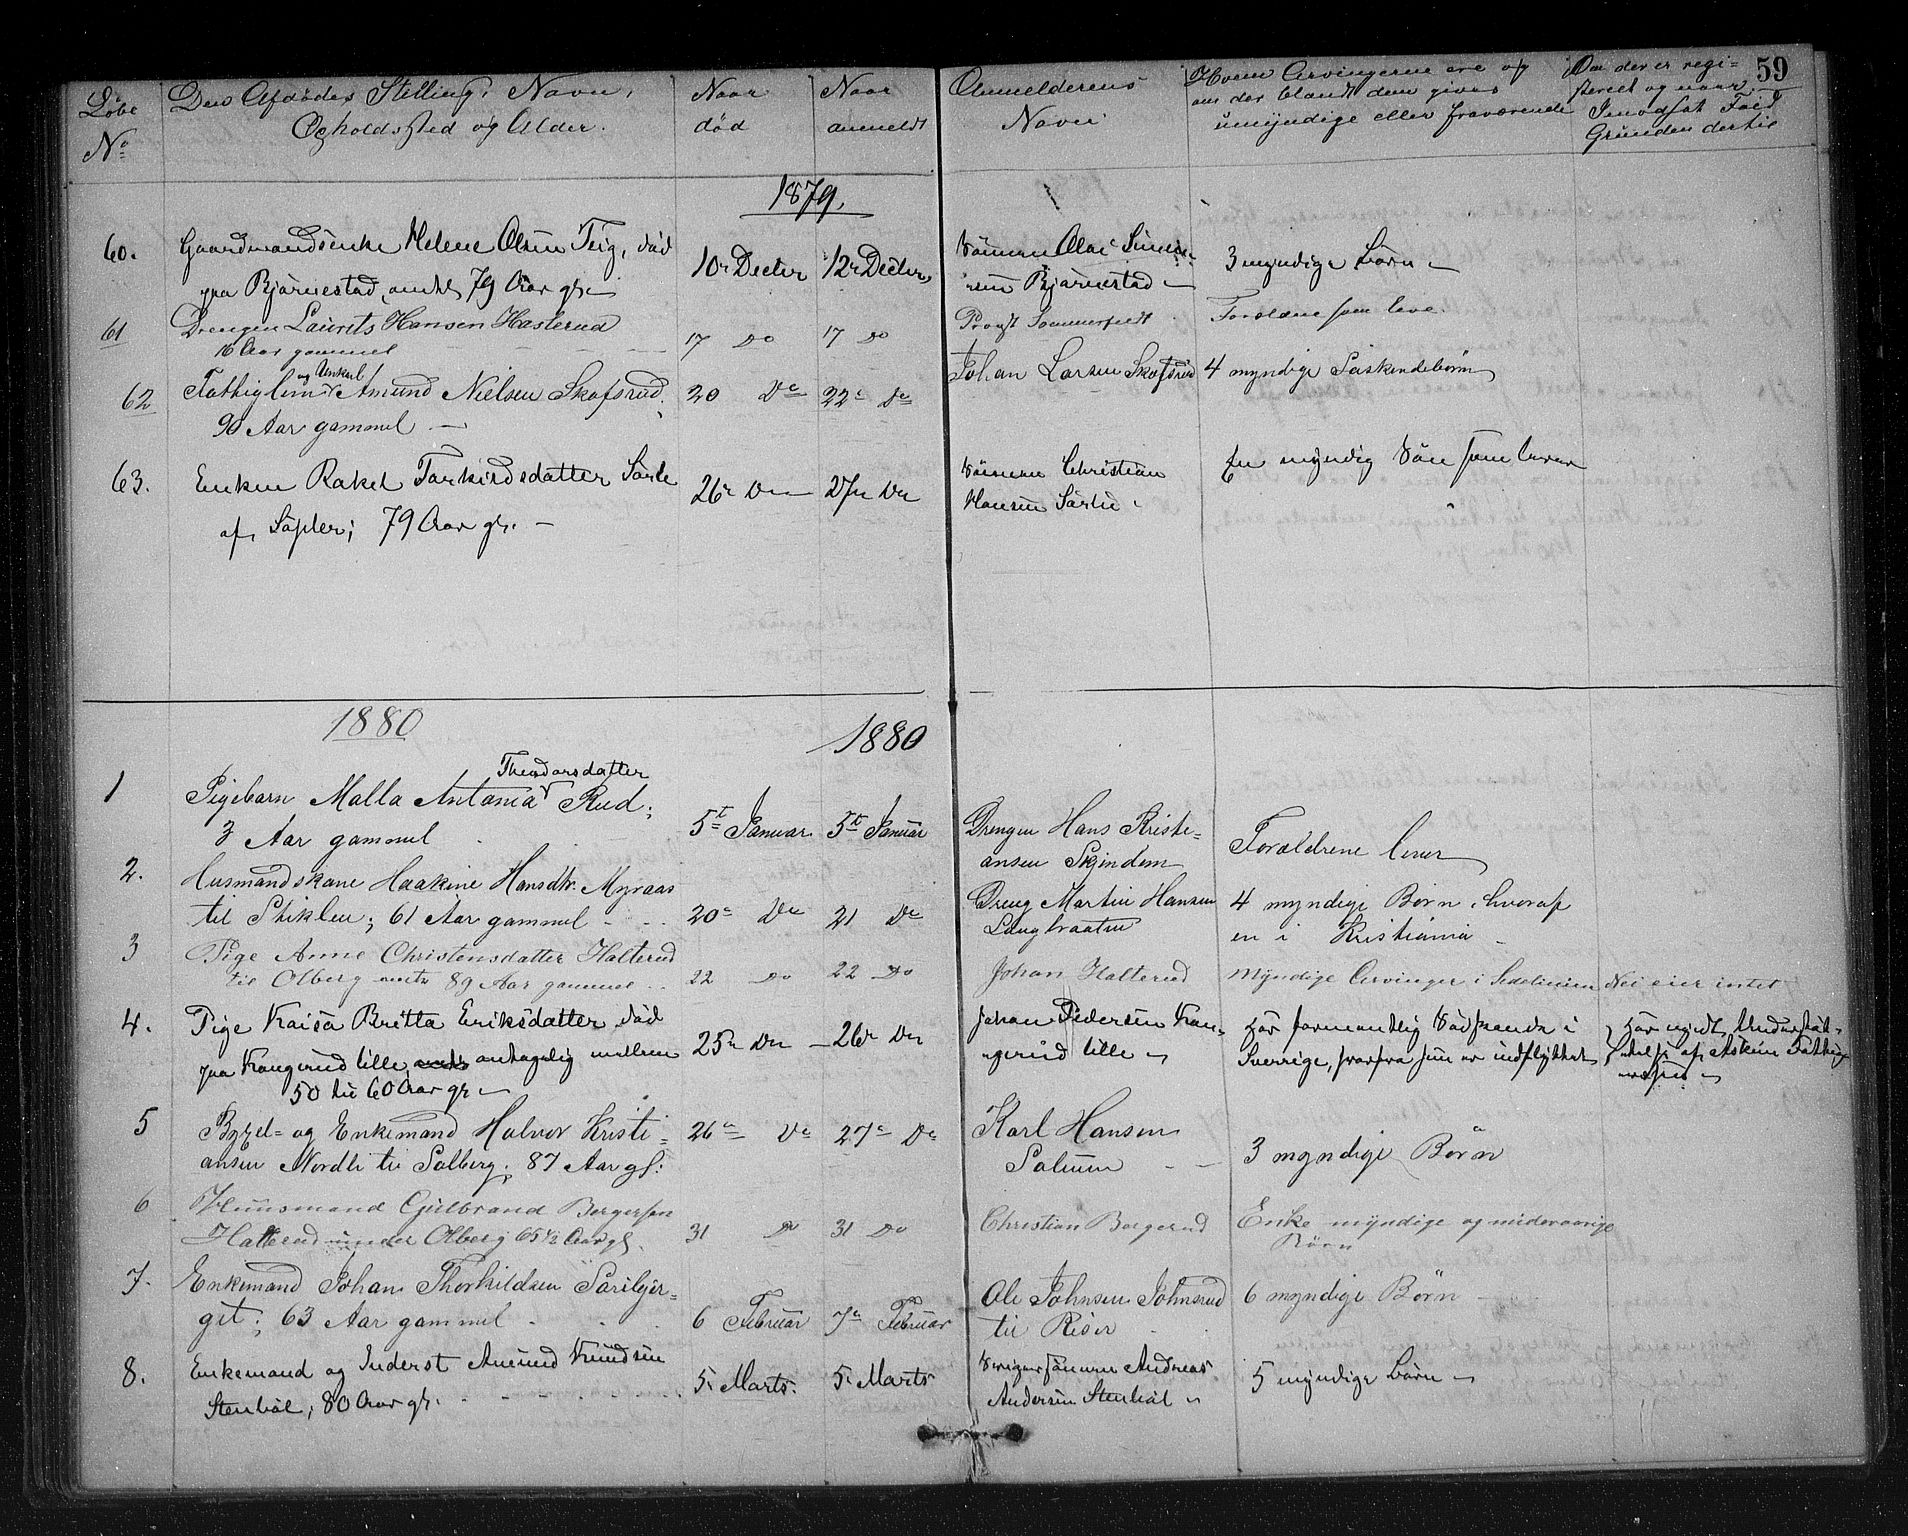 59
Løbe
No
Den Afdødes Stilling, Navn,
Opholdssted og Alder.
Naar
død
Naar
anmeldt
Anmelderens
Navn.
Hvem Arvingerne ere og
om der blandt dem gives
umyndige eller fraværende
Om der er regi-
streret og naar,
I modsat Fald
Grunden dertil
1879.
60.
Gaardmandsenke Helene Olsen Teig, død
paa Bjørnestad, omtr. 79 Aar gl. —
10de Decbr
12te Decbr
Sønnen Olai
Bjørnestad —
3 myndige Børn —
61
Drengen Laurits Hansen Haslerud
16 Aar gammel
17 Do
17 Do
Provst Sommerfeldt
Forældre som leve.
62
og Unkarl
Fattiglem Amund Nielsen Skofsrud,
90 Aar gammel —
20 Do
22 Do
Johan Larsen Skofsrud
4 myndige Søskendebørn
63.
Enken Rakel Torkildsdatter Sørli
af Spler; 79 Aar gl. —
26 Do —
27 Do
Sønnen Christian
Hansen Sørli
En myndig Søn som lever
1880
1880
1
Theodorsdatter
Pigebarn Malla Antonia Rud;
3 Aar gammel
5te Januar
5te Januar
Drengen Hans Kristi-
ansen Skjindem
Forældrene lever
2.
Husmandskone Haakine Hansdtr Myraas
til Stiklen; 61 Aar gammel
20 Do
21 Do
Dreng Martin Hansen
Langbraaten
4 myndige Børn, hvoraf
en i Kristiania
3
Pige Anne Christensdatter Halterud
til Olberg omtr 89 Aar gammel
22 Do
22 Do
Johan Halterud
Myndige Arvinger i Sidelinien
Nei eier intet
4.
Pige Kaisa Britta Eriksdatter, død
paa Kangerud lille, antagelig mellem
50 til 60 Aar gl —
25 Do —
26 Do
Johan Pedersen Kan-
gerud lille —
Har formentlig Sødskende i
Sverrige, hvorfra hun er indflyttet
Har nydt Understøt-
telse af Askim Fattig-
—
5
Bygsel- og Enkemand Halvor Kristi-
ansen Nordli til Solberg; 87 Aar gl:
26 Do
27 Do
Karl Hansen
Solumn
3 myndige Børn
6
Huusmand Gulbrand Bergersen
Halterud under Olberg 65½ Aar gl.
31 Do
31 Do
Christian Borgerud
Enke myndige og mindreaarige
Børn
7.
Enkemand Johan Thorkildsen Søriljer-
get; 63 Aar gammel
6 Februar
7de Februar
Ole Johnsen Johnsrud
til Riser
6 myndige Børn
8.
Enkemand og Inderst Amund Knudsen
Stenbøl; 80 Aar gl.
5. Marts.
5. Marts
Svigersønnen Andreas
Andersen Stenbøl
5 myndige Børn —